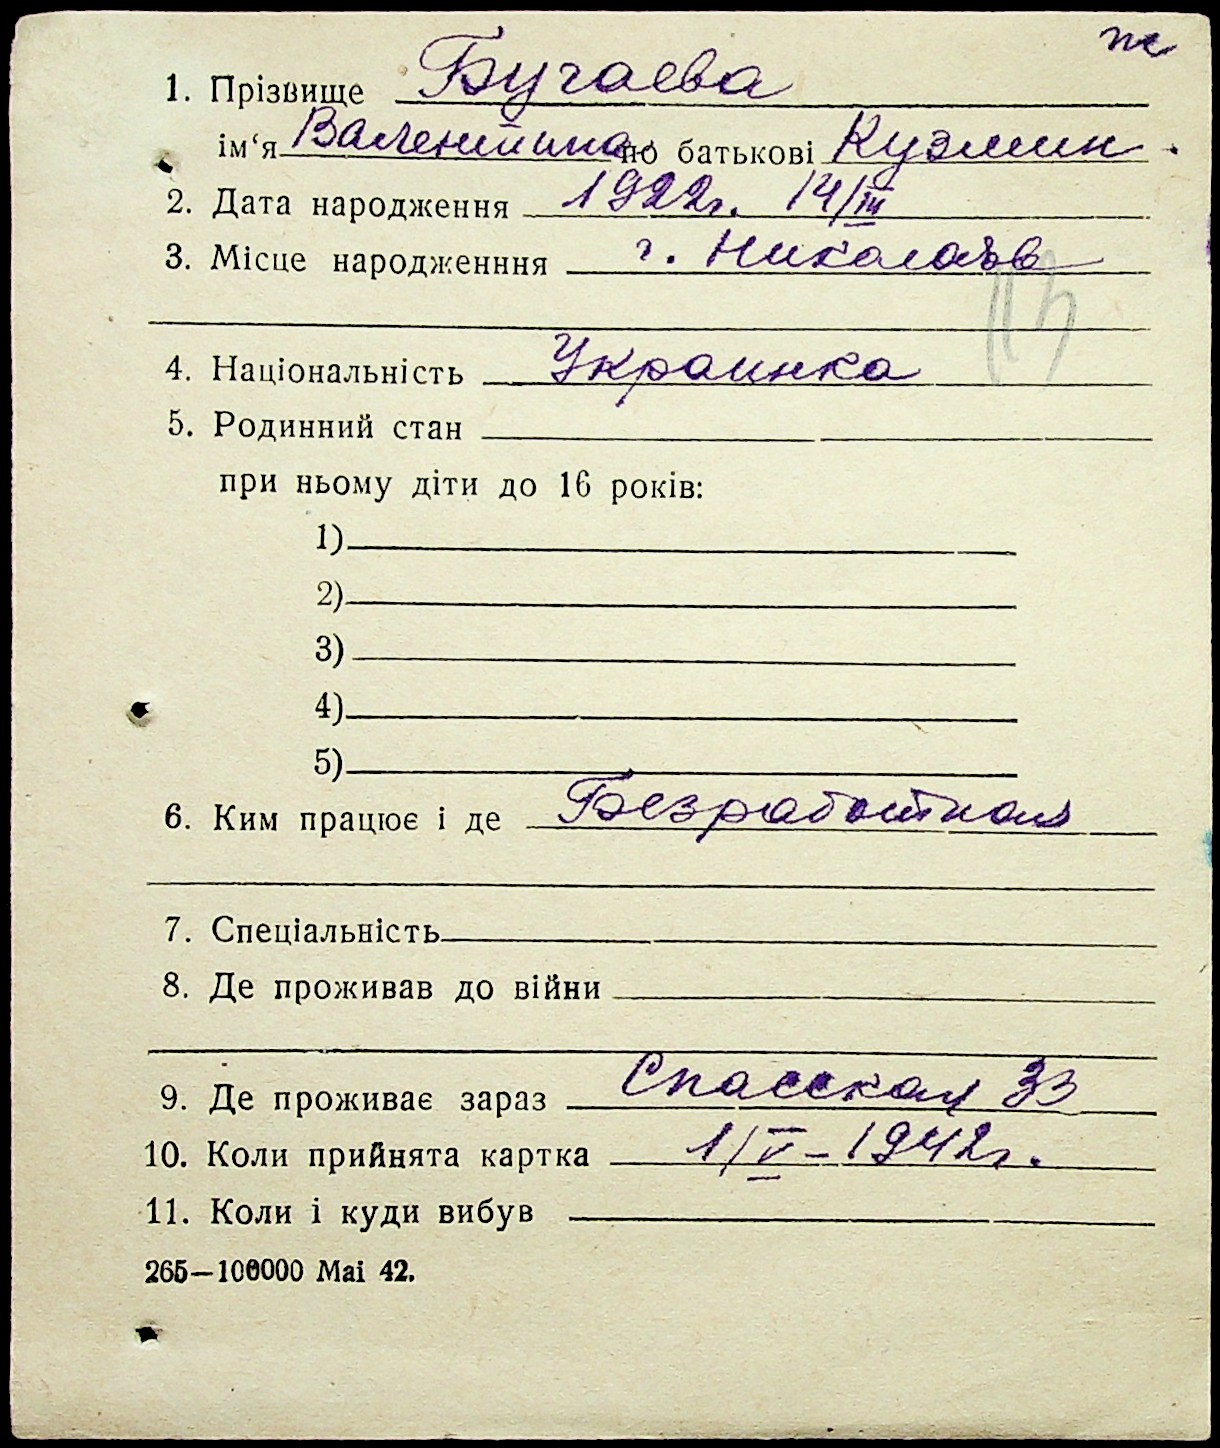 1. Прізвище Бугаева
ім‘я Валентина по батькові Кузмин.
2. Дата народження 1922г. 14/III
3. Місце народженння г. Николаев
4. Національність Украинка
5. Родинний стан
при ньому діти до 16 років:
1)
2)
3)
4)
5)
6. Ким працює і де Безработная
7. Спеціальність
8. Де проживав до війни
9. Де проживає зараз Спасская 33
10. Коли прийнята картка 1/V – 1942г.
11. Коли і куди вибув
265—100000 Mai 42.